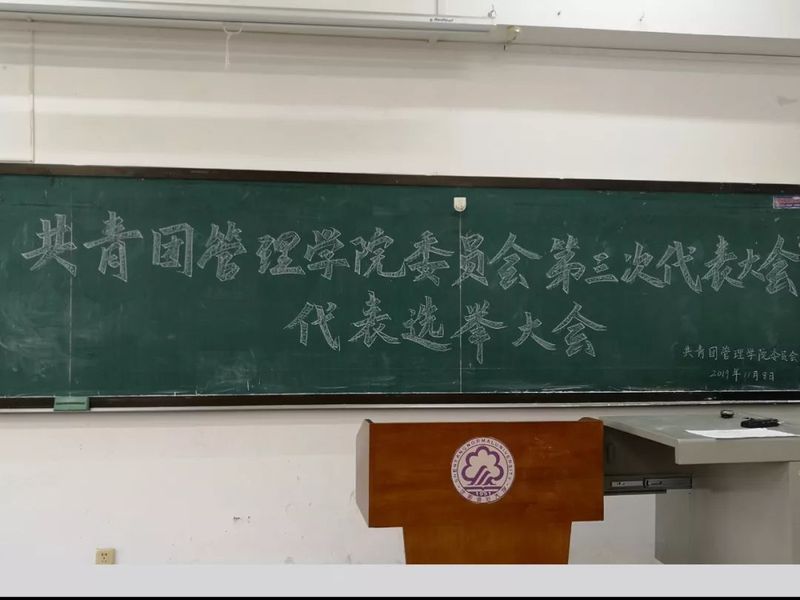 共青团管理学院委员会第三次代表大会
代表选举大会
共青团管理学院委员会
2019年11月8日
SHENYANG NORMAL UNIVERSITY
1951